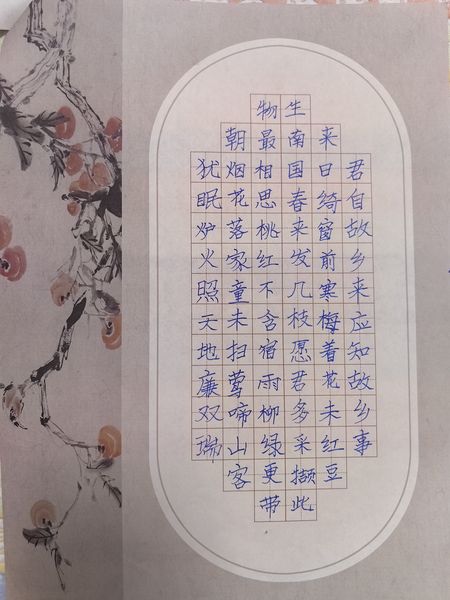 君自故乡来应知故乡事
来日绮窗前寒梅着花未红豆
生南国春来发几枝愿君多采撷此
物最相思桃红不含宿雨柳绿更带
朝烟花落家童未扫莺啼山客
犹眠炉火照天地廉双瑞